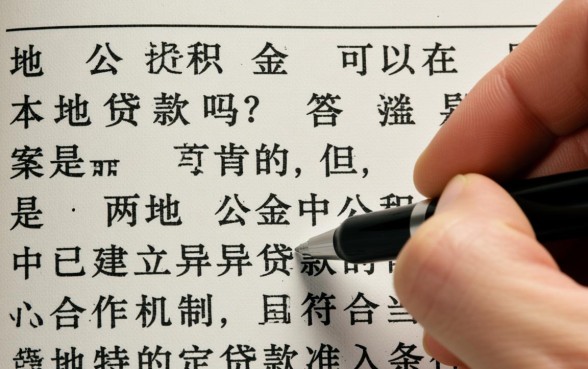 地 公 积 金 可以在
本地贷款吗? 答
案是 肯的,但,
是 · 两地 公金中公积
中已建立异异贷款的
心合作机制, 符合当
地特的定贷款准入条件